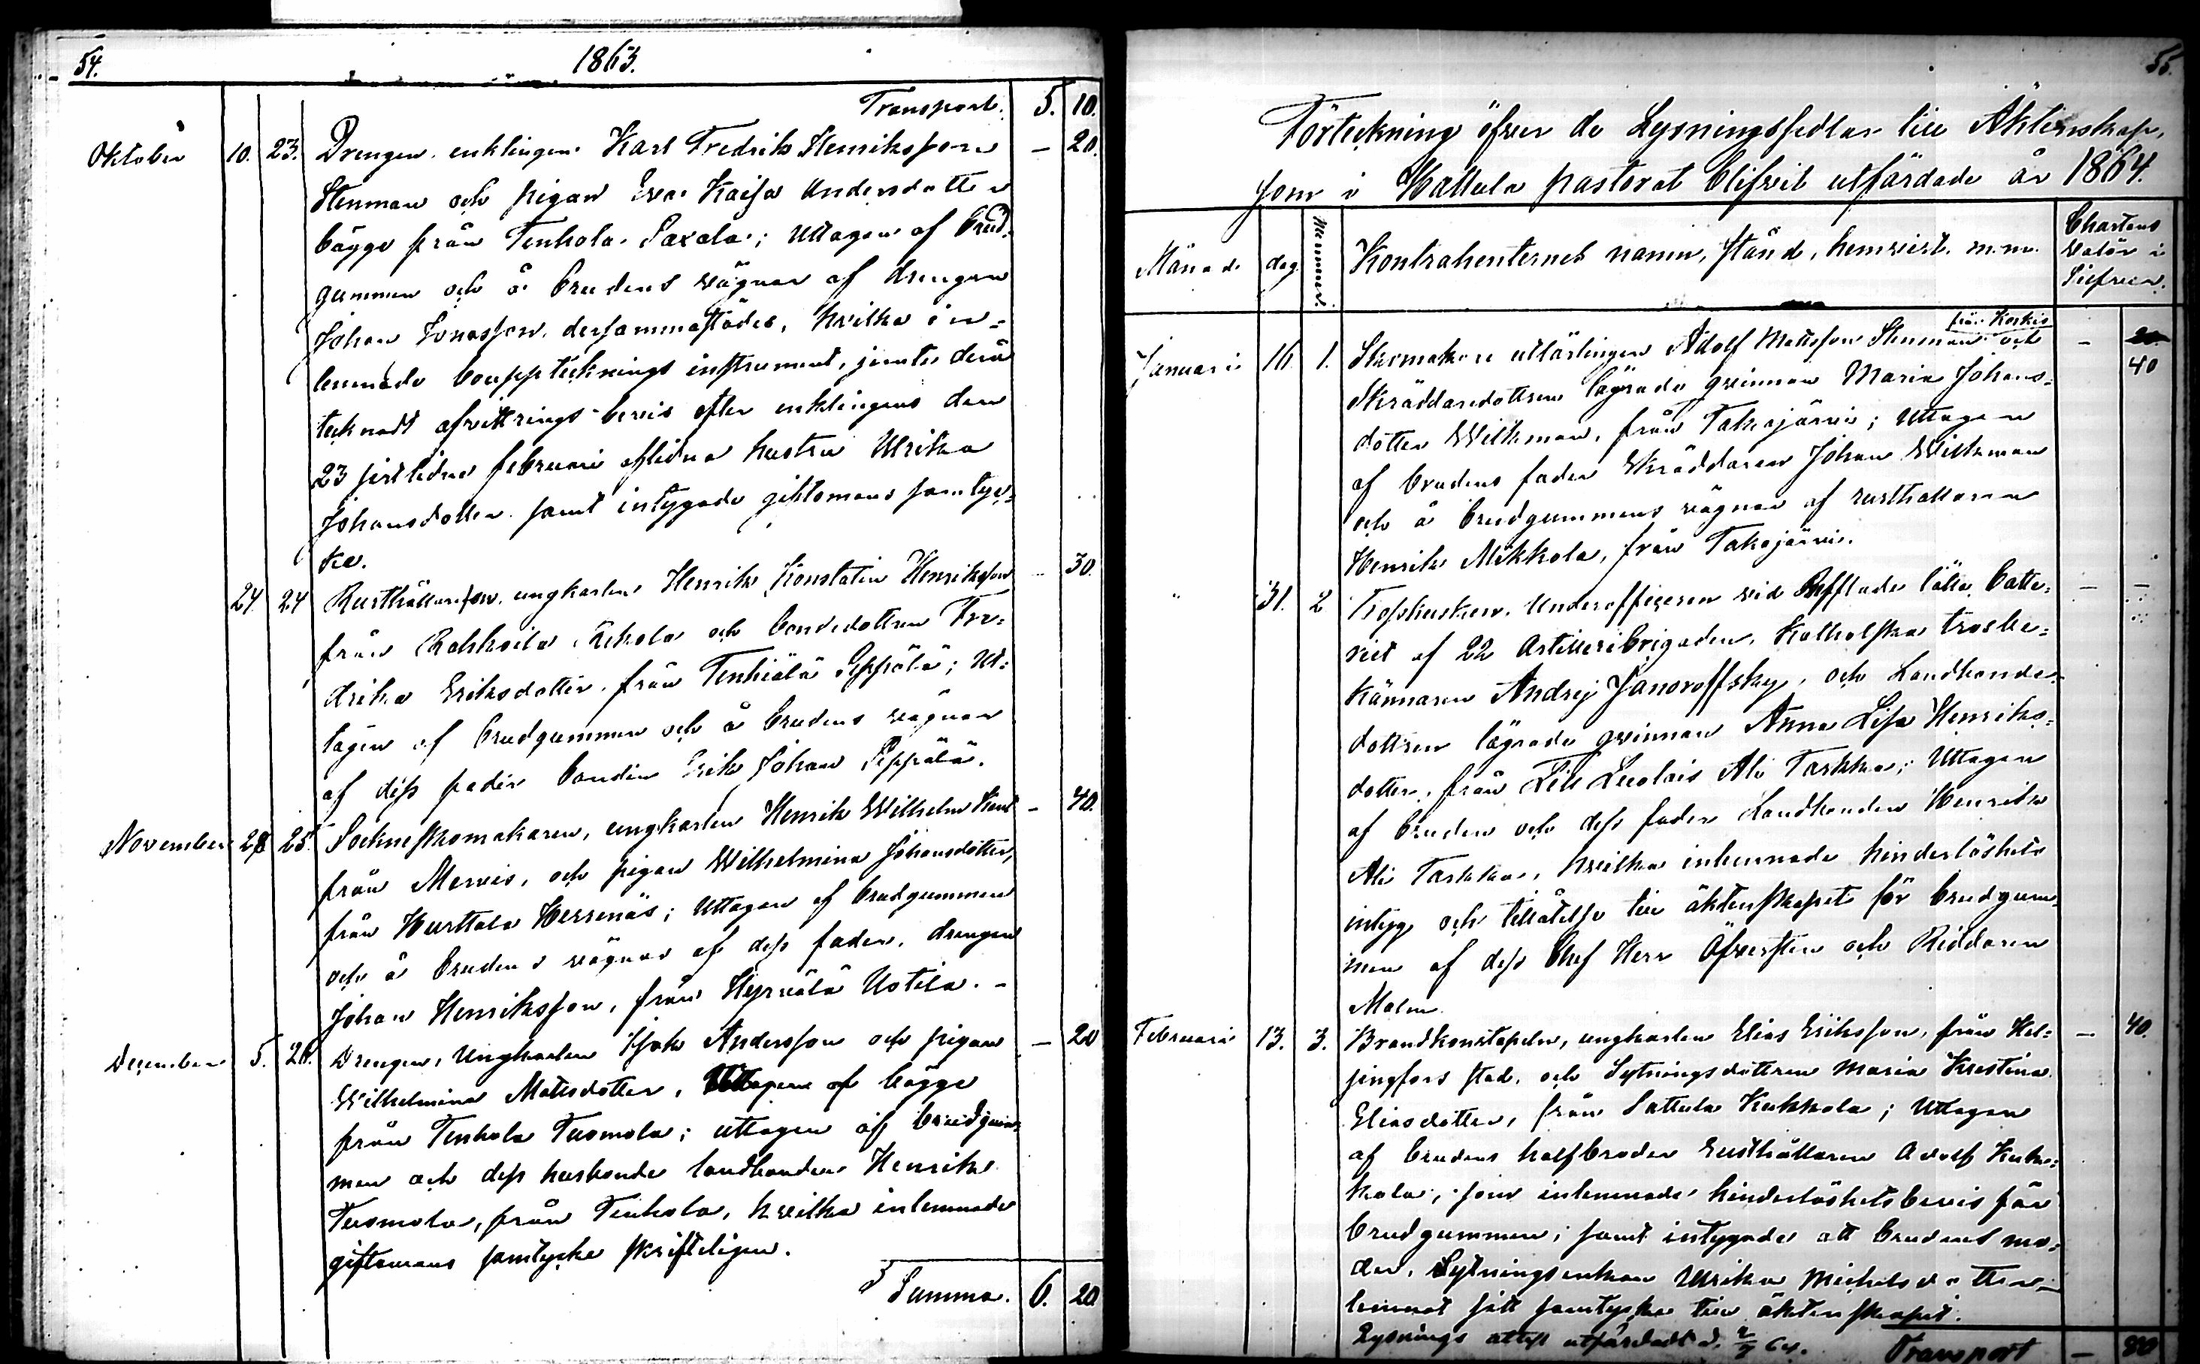 54.
1863.
Transport. 5. 10.
Oktober 10. 23. Drengen enklingen Karl Fredrik Henriksson — 20.
Stenman och pigan Eva Kaisa Andersdotter
bägge från Tenhola Saxala; Uttagen af brud-
gummen och å brudens vägnar af drengen
Johan Jonasson, dersammastädes, hvilka in-
lemnade bouppteknings instrument, jemte derå
teknadt afvittrings bevis efter enklingens den
23 sistlidne februari aflidna hustru Ulrika
Johansdotter samt intygade giftomans samtyc-
ke.
24. 24 Rusthållareson, ungkarlen Henrik Konstatin Henriksson — 30.
från Rahkoila Rekola och bondedottren Fre-
drika Eriksdotter från Tenhiälä Seppälä; ut-
tagen af brudgummen och å brudens vägnar
af dess fader bonden Erik Johan Seppälä.
November 28 25. Sockneskomakaren, ungkarlen Henrik Wilhelm — 40.
från Mervis, och pigan Wilhelmina Johansdotter,
från Hurttala Herrenäs; Uttagen af brudgummen
och å brudens vägnar af dess fader, drengen
Johan Henriksson, från Hyrvälä Uotila. -
December 5. 26. Drengen, Ungkarlen Isak Andersson och pigan — 20
Wilhelmina Mattsdotter, bägge
från Tenhola Tuomola; uttagen af brudgum-
men och dess husbonde landbonden Henrik
Tuomola, från Tenhola, hvilka inlemnade
giftomans samtycke skrifteligen.
Summa. 6. 20
55.
Förteckning öfver de Lysningssedlar till Äktenskap,
som i Hattula pastorat blifvit utfärdade år 1864.
Månad. dag. Nummer. Kontrahenternes namn, stånd, hemvist. m.m. Chartans valör i Silfver.
från Karkis
Januari 16. 1. Skomakare utlärlingen Adolf Mattsson Stenman och — 20
40
Skräddaredottren lägrade qvinnan Maria Johans-
dotter Wilkman, från Takajärvi; Uttagen
af brudens fader Skräddaren Johan Wilkman
och å brudgummens vägnar af rusthållaren
Henrik Mikkola, från Takajärvi.
" 31. 2 Trosskusken, Underofficeren vid lätta batte- — —
riet af 22 Artilleribrigaden, Katholska trosbe-
kännaren Andrej Janoroffsky, och Landbonde-
dottren lägrade qvinnan Anna Lisa Henriks-
dotter, från Lill Luolais Ali Tarkka; Uttagen
af bruden och dess fader Landbonden Henrik
Ali Tarkka, hvilka inlemnade hinderlöshets
intyg och tillåtelse till äktenskapet för brudgum-
men af dess Chef Herr Öfversten och Riddaren
Molin.
Februari 13. 3. Brandkonstapeln, ungkarlen Elias Eriksson, från Hel- — 40.
singfors stad, och Sytningsdottren Maria Kristina
Eliasdotter, från Sattula Kukkola; Uttagen
af brudens halfbroder rusthållaren Adolf Kuk-
kola, som inlemnade hinderlöshetsbevis för
brudgummen; samt intygade att brudens mo-
der, Sytningsenkan Ulrika Michelsdotter
lemnat sitt samtycke till äktenskapet.
Lysnings attest utfärdadt d. 64.
Transport — 80